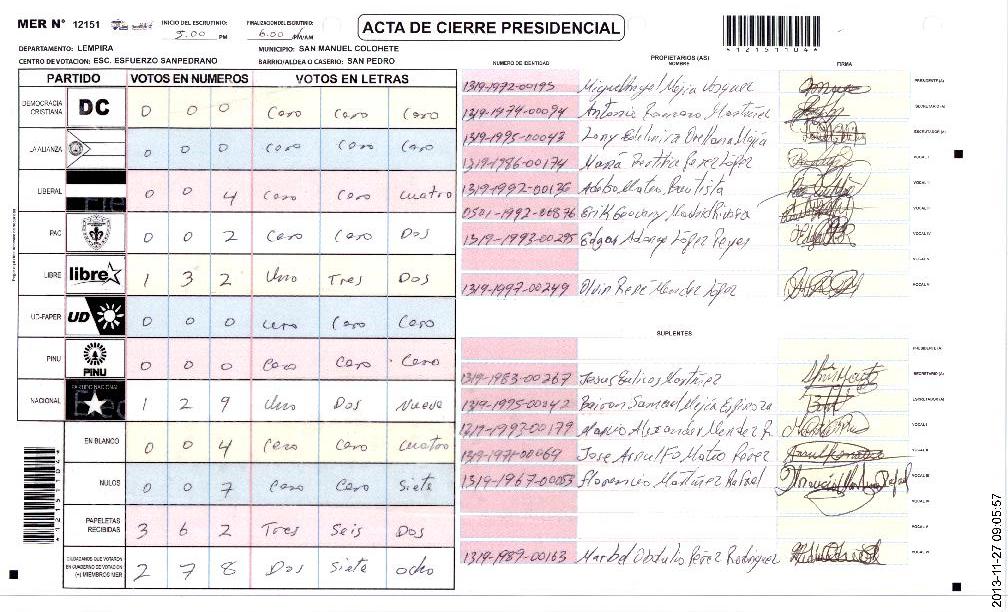 MER N° 12151
INICIO DEL ESCRUTINIO: 5.00 PM
FINALIZACION DEL ESCRUTINIO: 6.00 PM/AM
ACTA DE CIERRE PRESIDENCIAL
*12151104*
DEPARTAMENTO: LEMPIRA
MUNICIPIO: SAN MANUEL COLOHETE
CENTRO DE VOTACION: ESC. ESFUERZO SANPEDRANO
BARRIO/ALDEA O CASERIO: SAN PEDRO
PARTIDO VOTOS EN NUMEROS VOTOS EN LETRAS
DEMOCRACIA CRISTIANA DC 0 0 0 Cero Cero Cero
LA ALIANZA 0 0 0 Cero Cero Cero
LIBERAL 0 0 4 Cero Cero cuatro
PAC 0 0 2 Cero Cero Dos
LIBRE libre 1 3 2 Uno Tres Dos
UD-FAPER UD 0 0 0 Cero Cero Cero
PINU PINU 0 0 0 Cero Cero Cero
NACIONAL PARTIDO NACIONAL 1 2 9 Uno Dos Nueve
EN BLANCO 0 0 4 Cero Cero cuatro
NULOS 0 0 7 Cero Cero Siete
PAPELETAS RECIBIDAS 3 6 2 Tres Seis Dos
CIUDADANOS QUE VOTARON EN CUADERNO DE VOTACION (+) MIEMBROS MER 2 7 8 Dos Siete ocho
*12151104*
PROPIETARIOS (AS)
NUMERO DE IDENTIDAD NOMBRE FIRMA
1319-1972-00195 Miguel Angel Mejia Vasquez PRESIDENTE (A)
1319-1974-00094 Antonio Romero Martinez SECRETARIO (A)
1319-1995-00043 Orellana Mejia ESCRUTADOR (A)
1319-1986-00174 Maria Perez López VOCAL I
1319-1992-00136 Mateo Bautista VOCAL II
0501-1992-00876 Erik Geovany Madrid VOCAL III
1319-1993-00295 Edgar López Reyes VOCAL IV
VOCAL V
1319-1997-00249 Olvin René Mendez López VOCAL VI
SUPLENTES
PRESIDENTE (A)
1319-1983-00267 Martinez SECRETARIO (A)
1319-1995-00242 Bairon Samuel Mejía Espinoza ESCRUTADOR (A)
1319-1993-00179 Alexander Mendez R. VOCAL I
1319-1971-00069 Jose Arnulfo Mateo Perez VOCAL II
1319-1967-00053 Florencio Martinez Rafael VOCAL III
VOCAL IV
VOCAL V
1319-1989-00163 Pérez Rodriguez VOCAL VI
2013-11-27 09:05:57